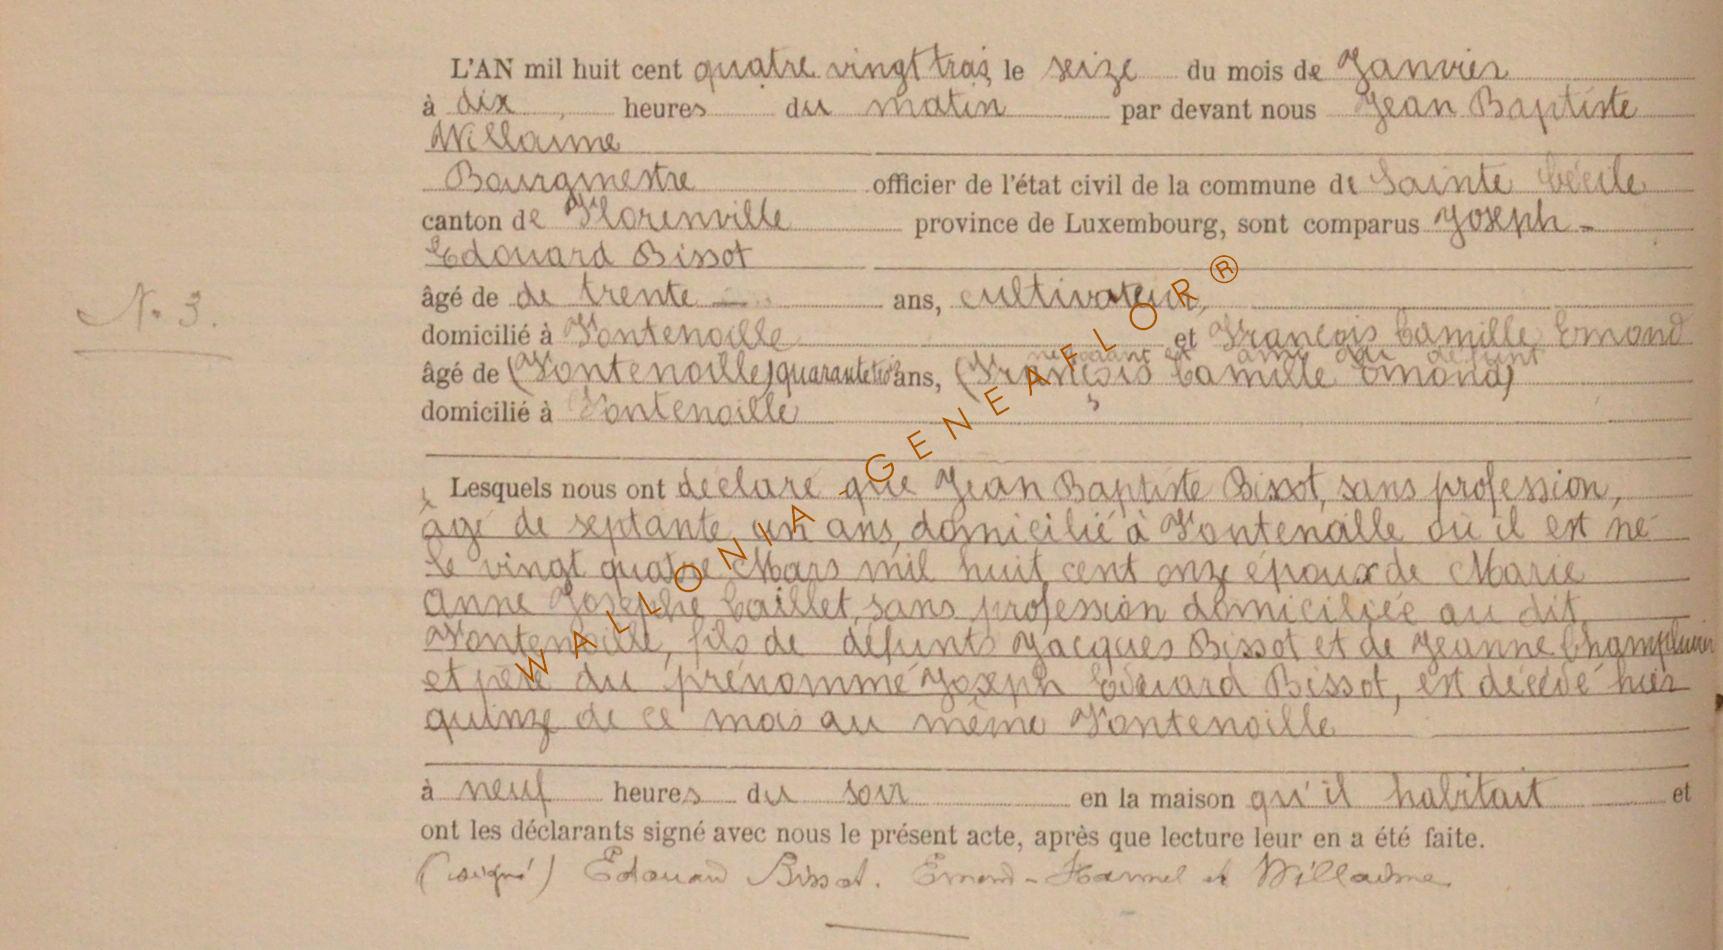 L'AN mil huit cent quatre vingt trois le seize du mois de Janvier
à dix heures du matin par devant nous Jean Baptiste
Willaime
Bourgmestre officier de l'état civil de la commune de Sainte Cécile
canton de Florenville province de Luxembourg, sont comparus Joseph -
Edouard Bissot
N° 3.
âgé de de trente ans, cultivateur,
domicilié à Fontenoille et François Camille Emond
négociant et ami du défunt
âgé de (Fontenoille) quarante trois ans, (François Camille Emond)
domicilié à Fontenoille
Lesquels nous ont déclaré que Jean Baptiste Bissot, sans profession,
âgé de septante un ans, domicilié à Fontenoille où il est né
le vingt quatre Mars mil huit cent onze époux de Marie
Anne Josephe Caillet, sans profession domiciliée au dit
Fontenoille, fils de défunts Jacques Bissot et de Jeanne
et père du prénommé Joseph Edouard Bissot, est décédé hier
quinze de ce mois au même Fontenoille
à neuf heures du soir en la maison qu'il habitait et
ont les déclarants signé avec nous le présent acte, après que lecture leur en a été faite.
(signé) Edouard Bissot. Emond - et Willaime
WALLONIA - GENEAFLOR ®